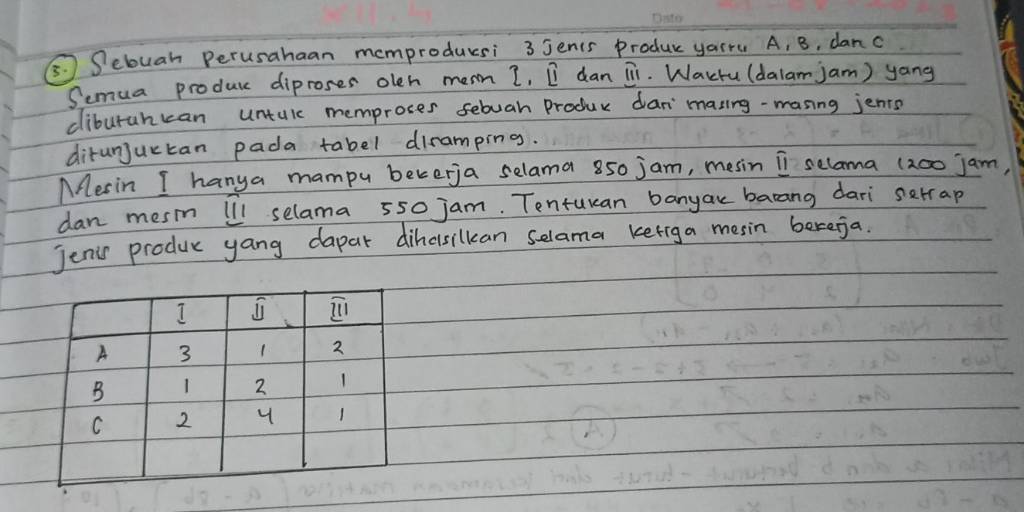 Date
3. Sebuah perusahaan memproduksi 3 jenis produk yaitu A, B, dan C
Semua produk diproses oleh mesin I, II dan III. Waktu (dalam jam) yang
dibutuhkan untuk memproses sebuah produk dari masing-masing jenis
ditunjukkan pada tabel disamping.
Mesin I hanya mampu bekerja selama 850 jam, mesin II selama 1200 jam,
dan mesin III selama 550 jam. Tentukan banyak barang dari setiap
jenis produk yang dapat dihasilkan selama ketiga mesin bekerja.
I II III
A 3 1 2
B 1 2 1
C 2 4 1